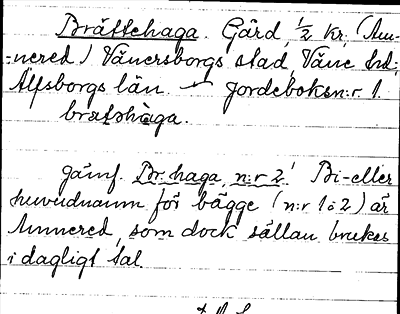 Brättehaga. Gård, 1/2 kr. (Äm-
-nered) Vänersborgs stad, Väne hd.,
Älfsborgs län. — Jordeboksn:r 1.
brætshàga.
Jämf. Br. haga, n:r 2! Bi- eller
huvudnamn för bägge (n:r 1 o 2) är
Ämnered, som dock sällan brukas
i dagligt tal.